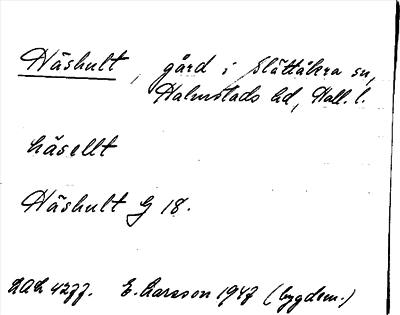 Häshult, gård i Slättåkra sn,
Halmstads hd, Hall. l.
häsellt
Häshult G 18.
DAL 4277. E. Larsson 1947 (bygdem.)